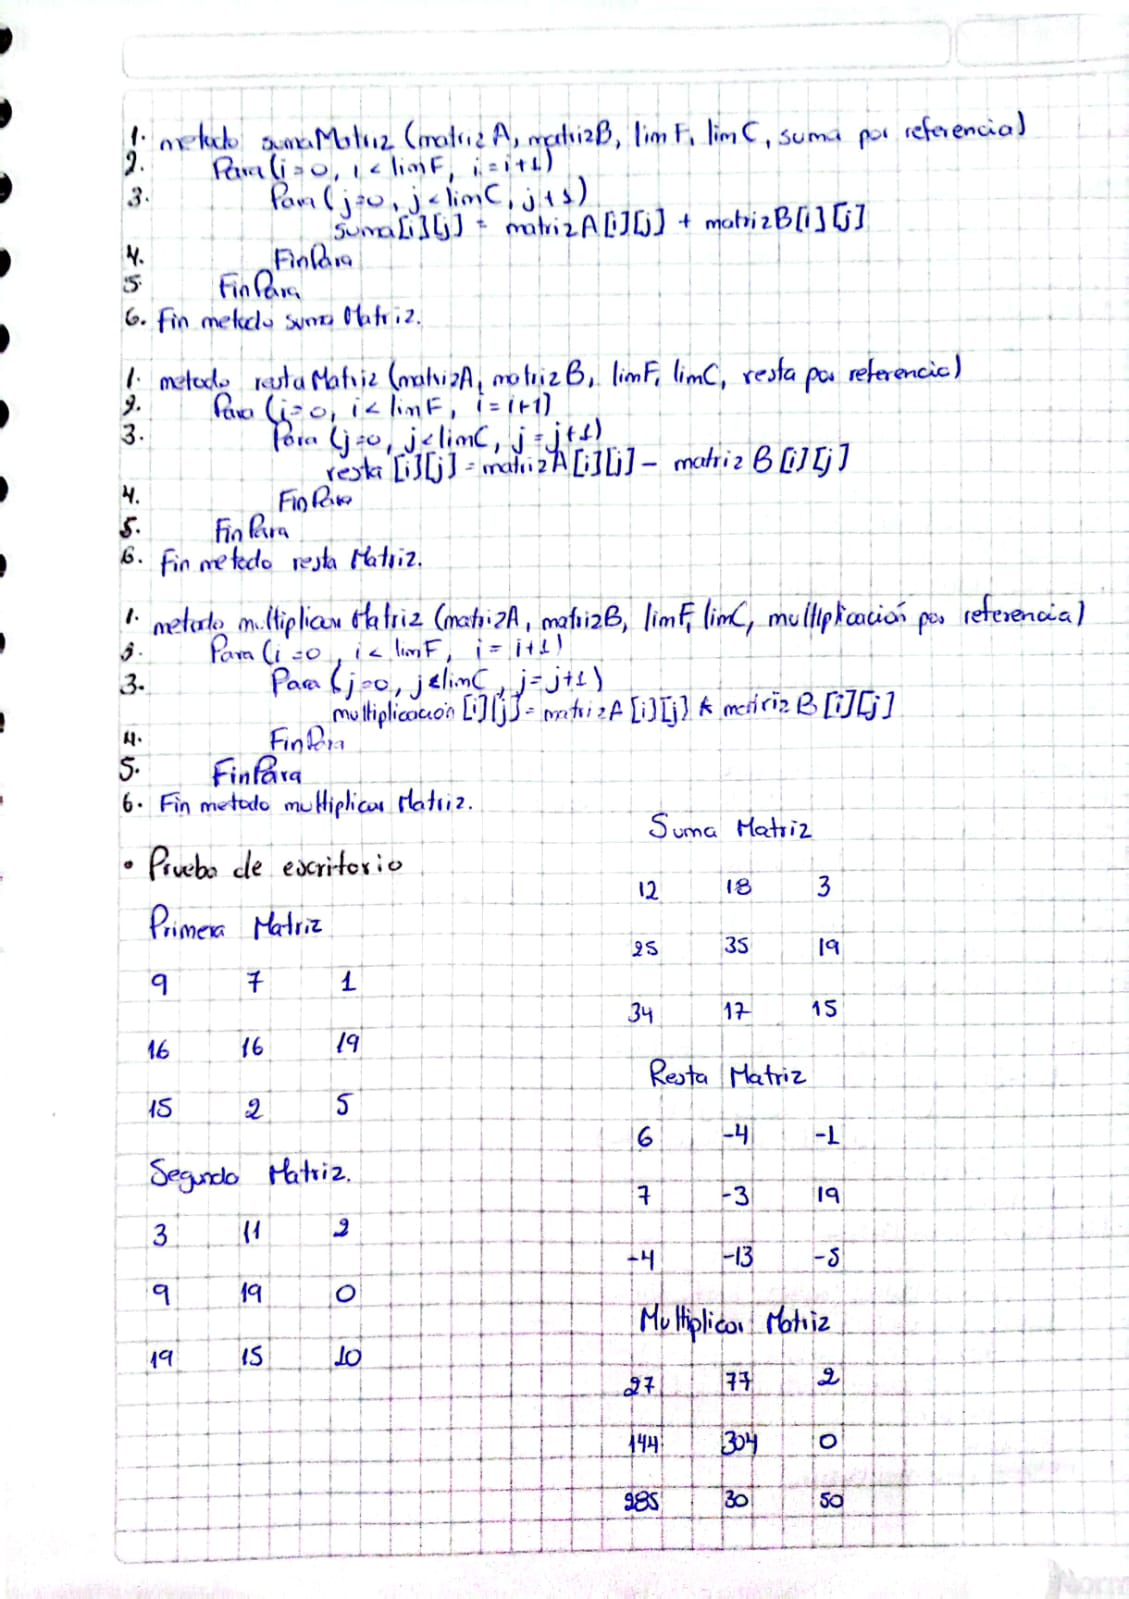 1. metodo sumaMatriz (matriz A, matrizB, lim F, lim C, suma por referencia)
2. Para (i=0, i < lim F, i=i+1)
3. Para (j=0, j<lim C, j+1)
suma[i][j] = matriz A[i][j] + matriz B[i][j]
4. FinPara
5. FinPara
6. Fin metodo suma Matriz.
1. metodo resta Matriz (matrizA, matriz B, lim F, lim C, resta por referencia)
2. Para (i=0, i< lim F, i=i+1)
3. Para (j=0, j<limC, j=j+1)
resta [i][j] = matriz A[i][j] - matriz B[i][j]
4. FinPara
5. FinPara
6. Fin metodo resta Matriz.
1. metodo multiplicar Matriz (matrizA, matrizB, lim F, limC, multiplicación por referencia)
2. Para (i=0, i< lim F, i= i+1)
3. Para (j=0, j<limC, j=j+1)
multiplicación [i][j] = matriz A[i][j] * matriz B[i][j]
4. FinPara
5. FinPara
6. Fin metodo multiplicar Matriz.
• Prueba de escritorio
Primera Matriz
9 7 1
16 16 19
15 2 5
Segunda Matriz.
3 11 2
9 19 0
19 15 10
Suma Matriz
12 18 3
25 35 19
34 17 15
Resta Matriz
6 -4 -1
7 -3 19
-4 -13 -5
Multiplicar Matriz
27 77 2
144 304 0
285 30 50
Norm